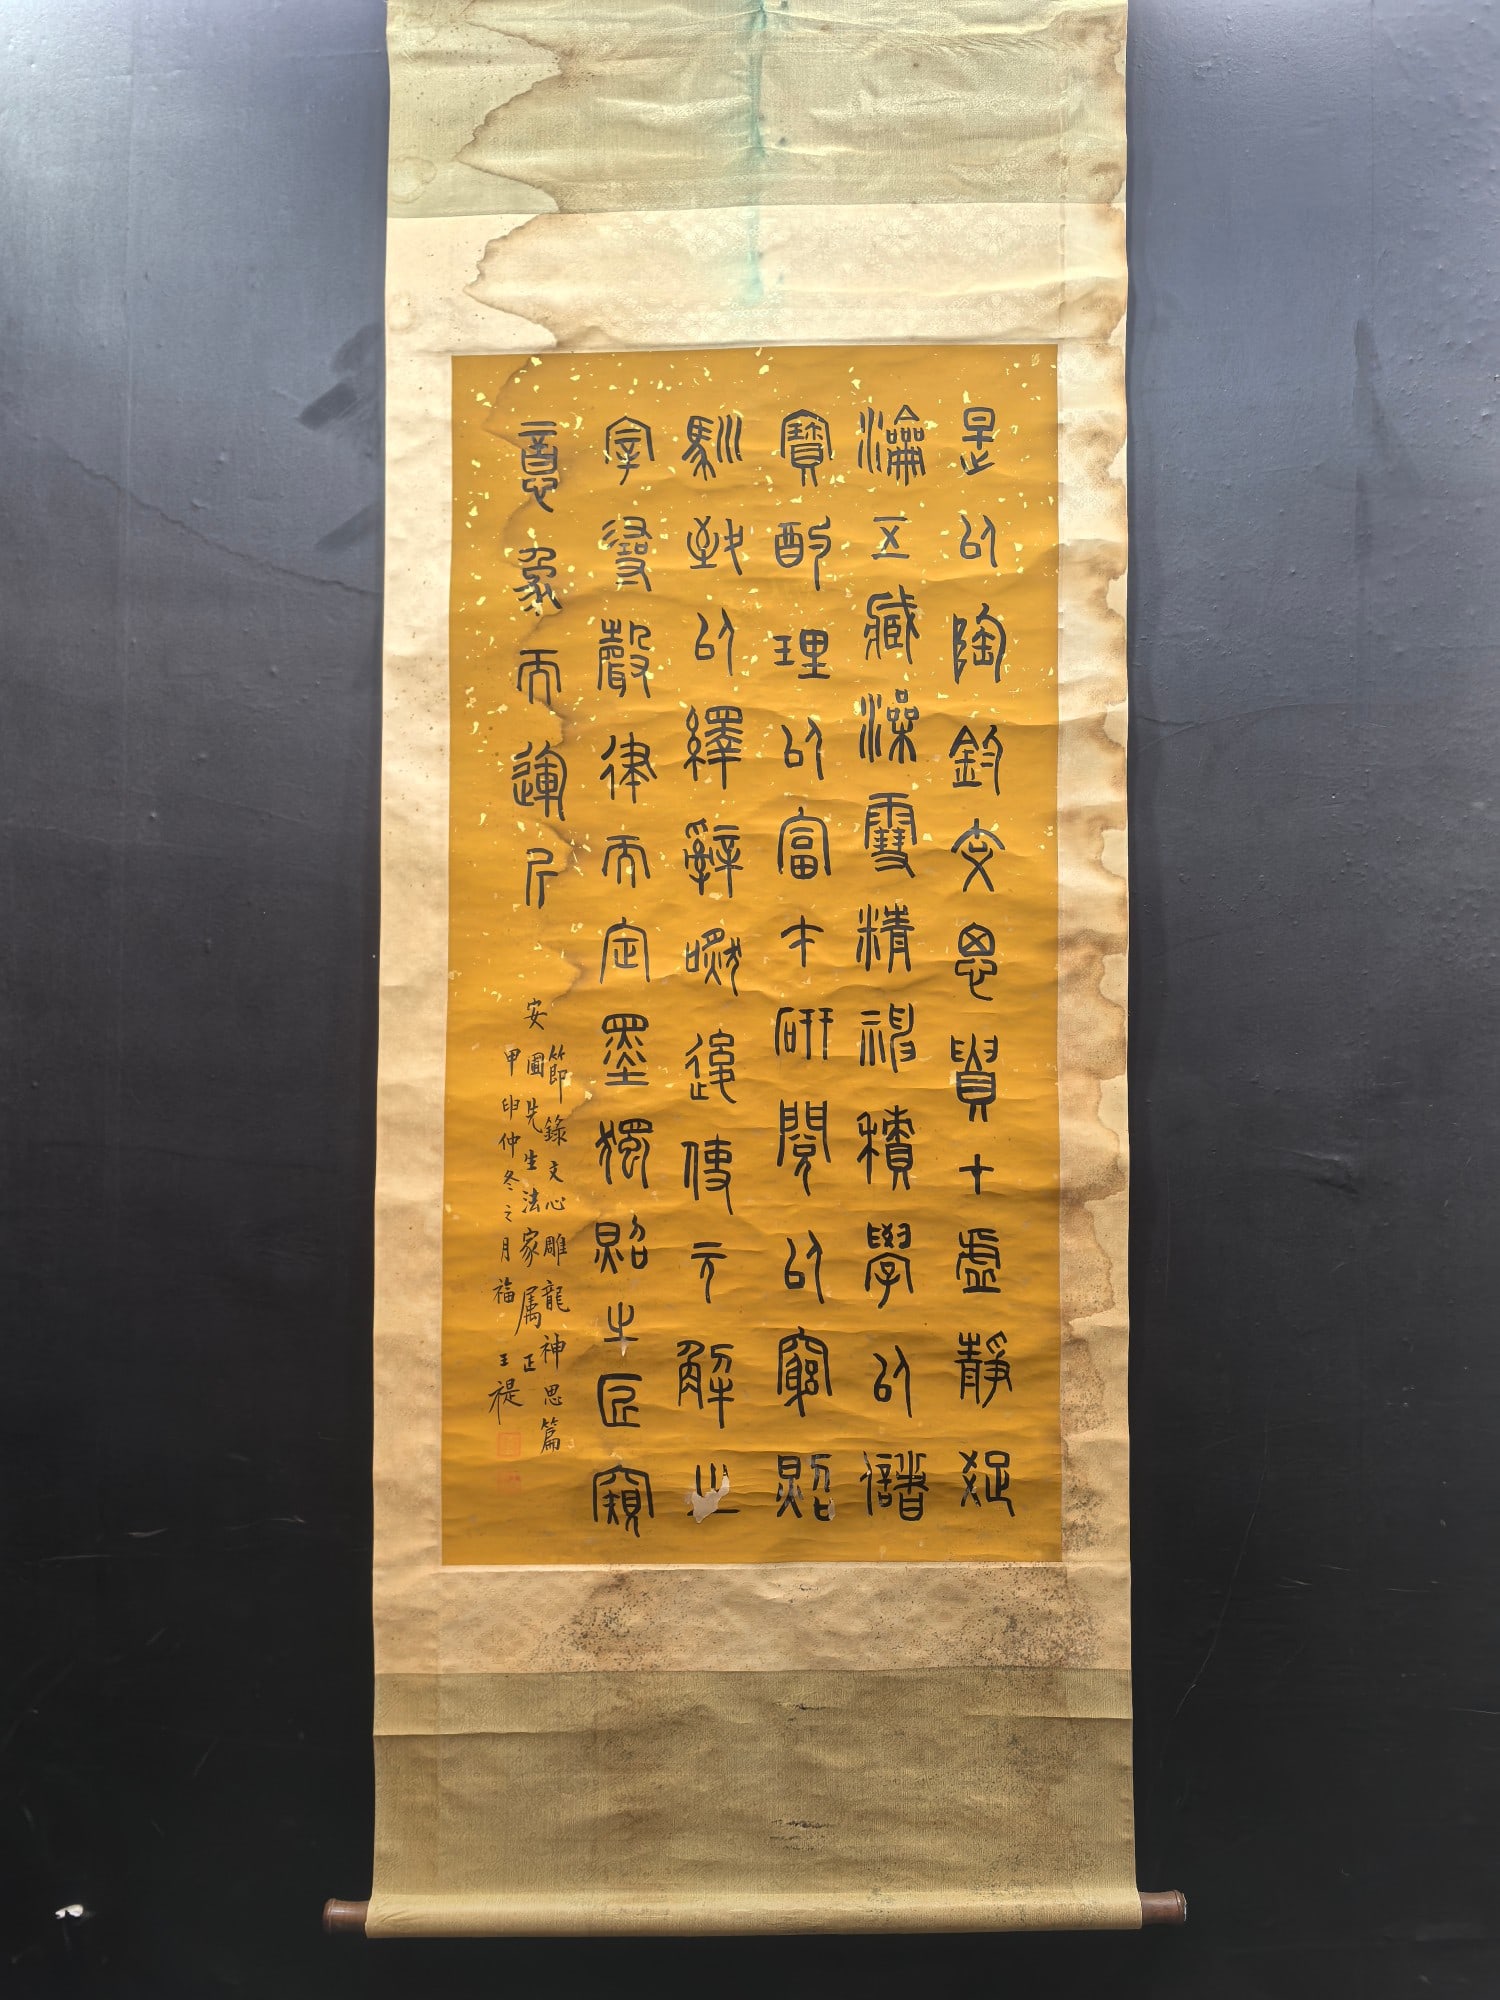 是以陶鈞文思貴在虛靜疏
瀹五藏澡雪精神積學以儲
寶酌理以富才研閱以窮照
馴致以繹辭嘫後使玄解之
宰尋聲律而定墨獨照之匠窺
意象而運斤
節錄文心雕龍神思篇
安圃先生法家属正
甲申仲冬之月福王禔